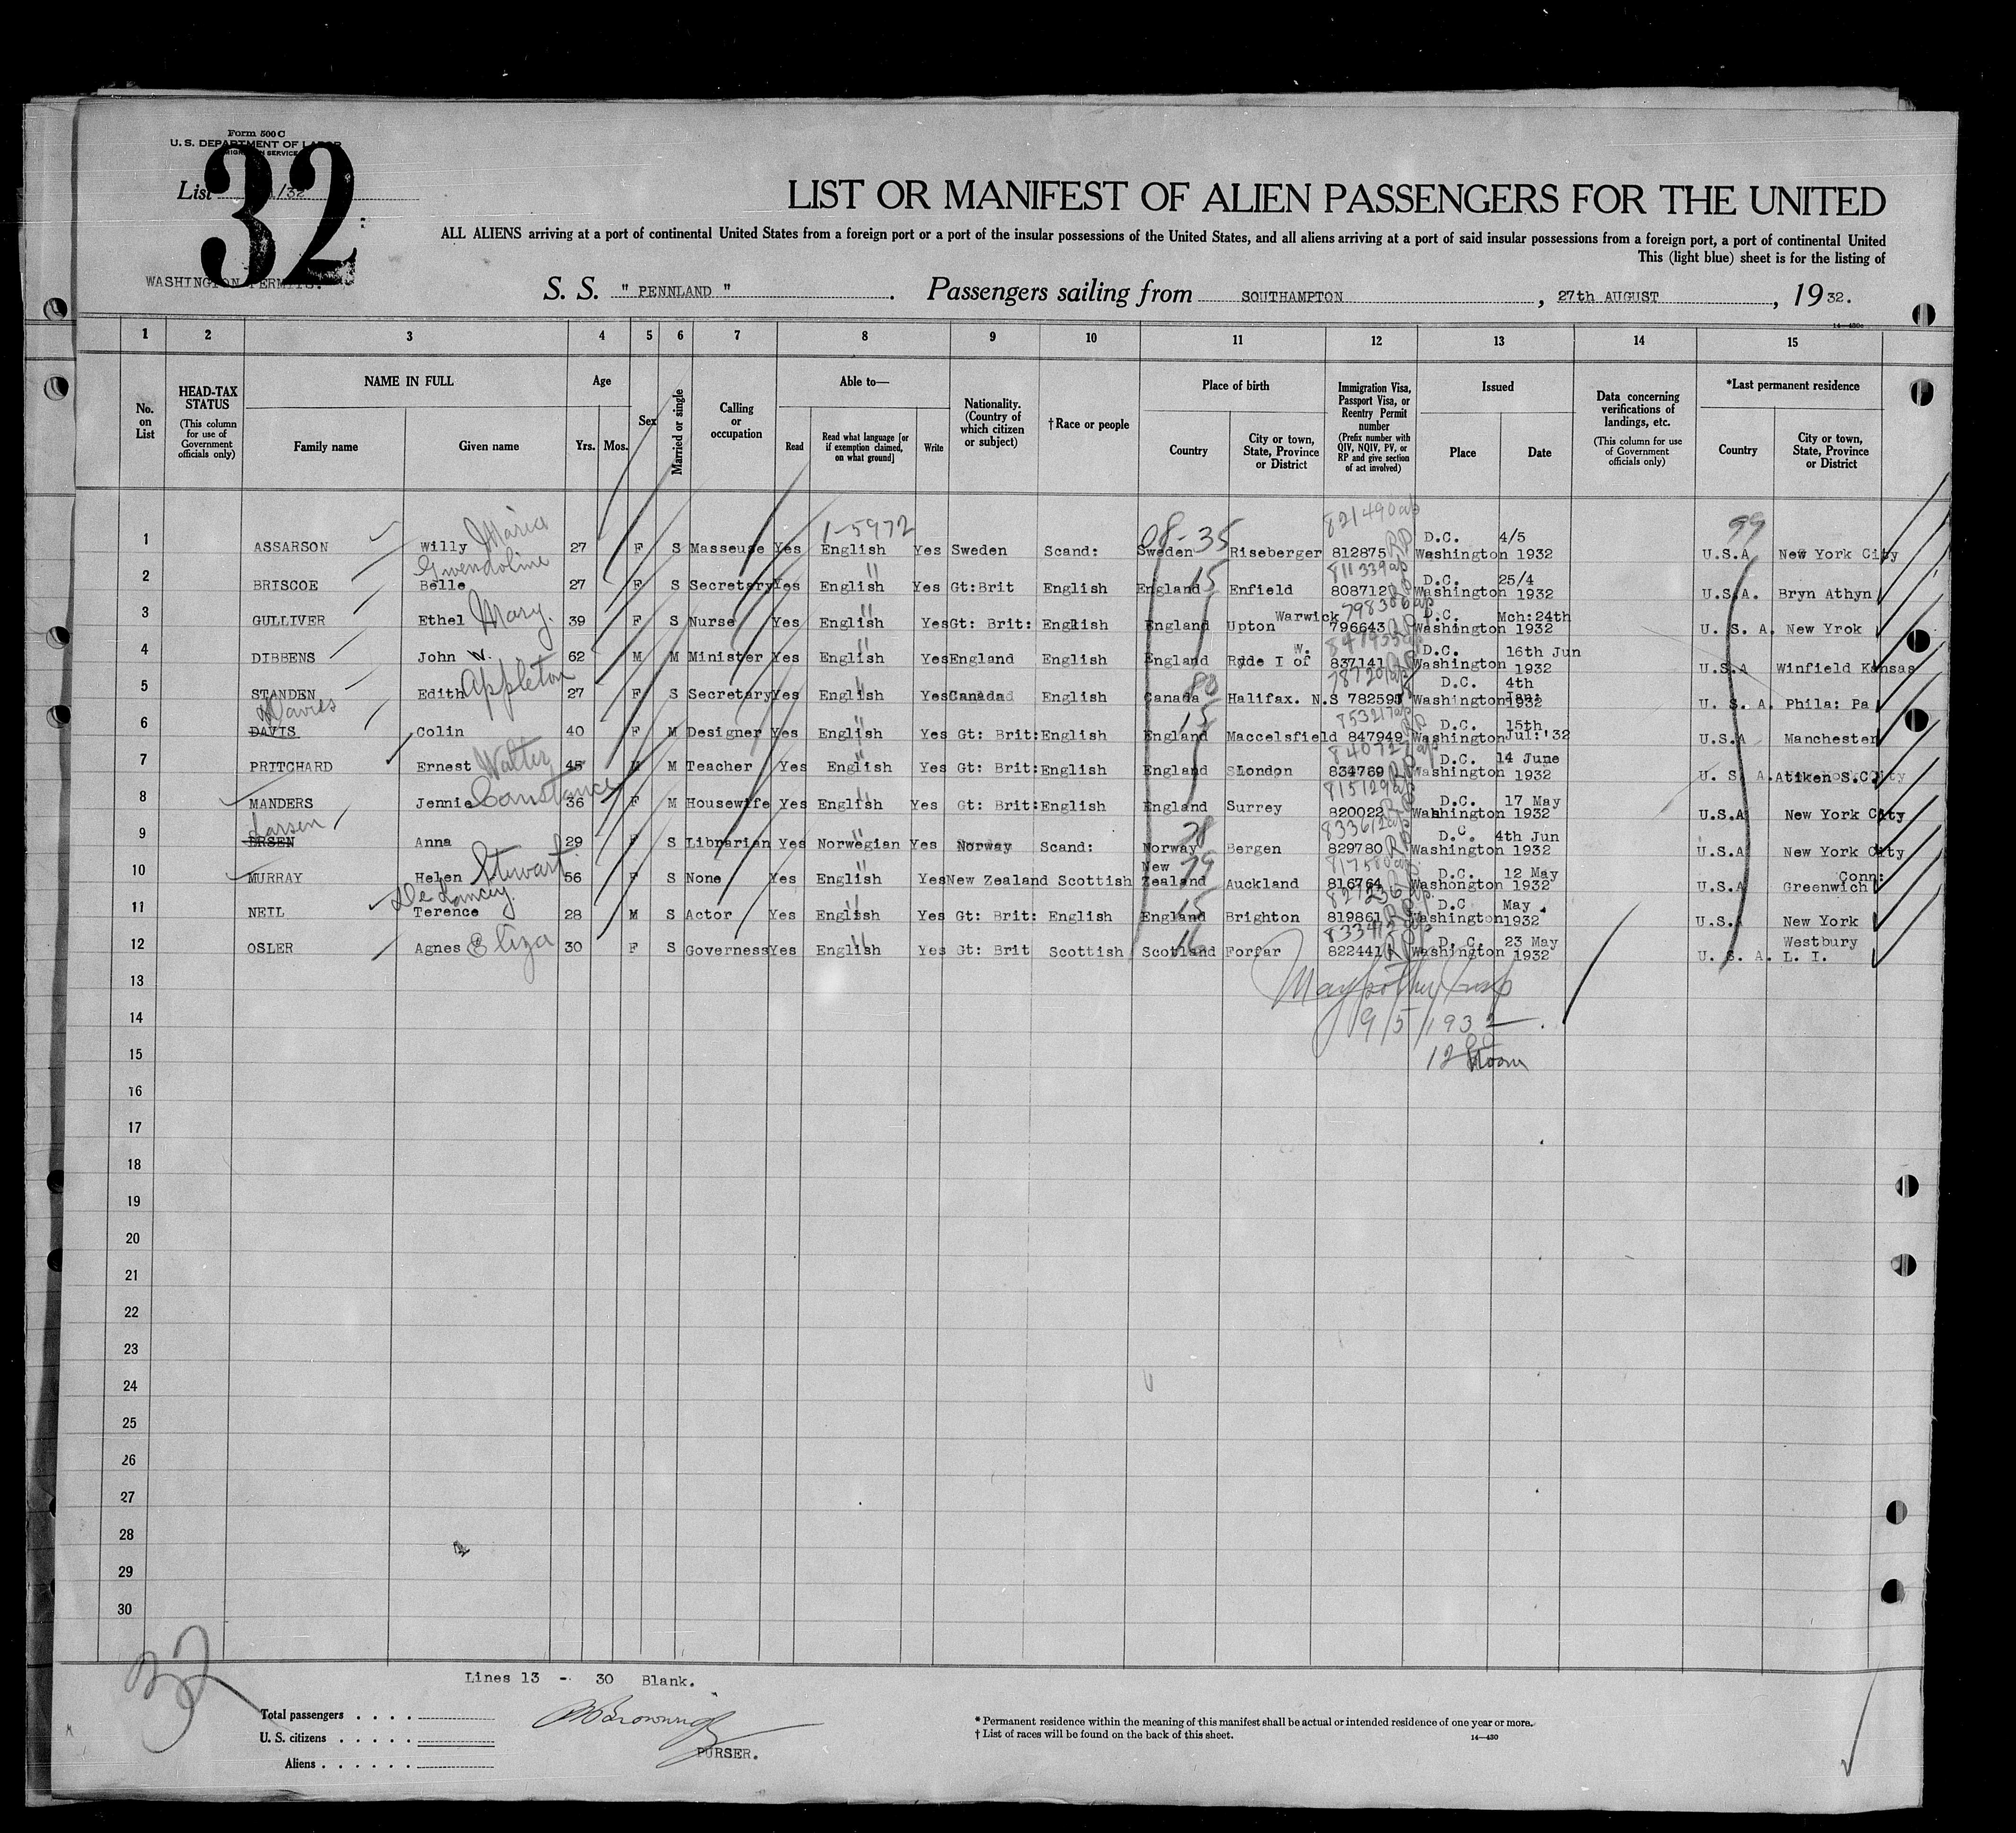 Form 500 C
U. S. DEPARTMENT OF LABOR
32
List
WASHINGTON PERMITS.
LIST OR MANIFEST OF ALIEN PASSENGERS FOR THE UNITED
ALL ALIENS arriving at a port of continental United States from a foreign port or a port of the insular possessions of the United States, and all aliens arriving at a port of said insular possessions from a foreign port, a port of continental United
This (light blue) sheet is for the listing of
S. S. " PENNLAND " . Passengers sailing from SOUTHAMPTON , 27th AUGUST , 1932.
14—430c
1 2 3 4 5 6 7 8 9 10 11 12 13 14 15
No. on List
HEAD-TAX STATUS (This column for use of Government officials only)
NAME IN FULL Family name Given name
Age Yrs. Mos.
Sex
Married or single
Calling or occupation
Able to— Read Read what language [or if exemption claimed, on what ground] Write
Nationality. (Country of which citizen or subject)
†Race or people
Place of birth Country City or town, State, Province or District
Immigration Visa, Passport Visa, or Reentry Permit number (Prefix number with QIV, NQIV, PV, or RP and give section of act involved)
Issued Place Date
Data concerning verifications of landings, etc. (This column for use of Government officials only)
*Last permanent residence Country City or town, State, Province or District
1 ASSARSON Willy Maria 27 F S Masseuse Yes 1-5972 English Yes Sweden Scand: 08-35 Sweden Riseberger 821490 812875 RP D.C. Washington 4/5 1932 99 U.S.A New York City
2 BRISCOE Gwendoline Belle 27 F S Secretary Yes English " Yes Gt:Brit English England 15 Enfield 811339 808712 RP D.C. Washington 25/4 1932 U.S.A. Bryn Athyn
3 GULLIVER Ethel Mary. 39 F S Nurse Yes English " Yes Gt: Brit: English England Upton Warwick 798386 796643 RP D.C. Washington Mch:24th 1932 U. S. A. New Yrok
4 DIBBENS John W. 62 M M Minister Yes English " Yes England English England Ryde I of W. 837141 RP D.C. Washington 16th Jun 1932 U.S.A Winfield Kansas
5 STANDEN Edith Appleton 27 F S Secretary Yes English " Yes Canada English Canada 80 Halifax. N.S 78720 D.C. Washington 4th Jan: 1932 U. S. A. Phila: Pa
6 DAVIS Davies Colin 40 F M Designer Yes English " Yes Gt: Brit: English England 15 Maccelsfield 853217 847949 RP D.C. Washington 15th Jul:'32 U.S.A Manchester
7 PRITCHARD Ernest Walter 45 M M Teacher Yes English " Yes Gt: Brit: English England London 840727 834769 RP D.C. Washington 14 June 1932 U. S. A. Atiken S.C.
8 MANDERS Jennie Constance 36 F M Housewife Yes English " Yes Gt: Brit: English England Surrey 815129 820022 RP D.C. Washington 17 May 1932 U.S.A New York City
9 ERSEN Larsen Anna 29 F S Librarian Yes Norwegian " Yes Norway Scand: Norway 28 Bergen 833612 829780 RP D.C. Washington 4th Jun 1932 U.S.A New York City
10 MURRAY Helen Stewart 56 F S None Yes English " Yes New Zealand Scottish New Zealand 79 Auckland 817580 816764 RP D.C. Washongton 12 May 1932 U.S.A Greenwich Conn:
11 NEIL De Lancey. Terence 28 M S Actor Yes English " Yes Gt: Brit: English England 15 Brighton 827236 819861 RP D.C Washington May 1932 U.S.A New York
12 OSLER Agnes Eliza 30 F S Governess Yes English " Yes Gt: Brit Scottish Scotland 16 Forfar 833412 822441 RP D. C. Washington 23 May 1932 U. S. A. Westbury L. I.
13
14 9/5/1932
15 12 Noon
16
17
18
19
20
21
22
23
24
25
26
27
28
29
30
32
Lines 13 - 30 Blank.
Total passengers
U. S. citizens
Aliens
PURSER.
* Permanent residence within the meaning of this manifest shall be actual or intended residence of one year or more.
† List of races will be found on the back of this sheet.
14—430